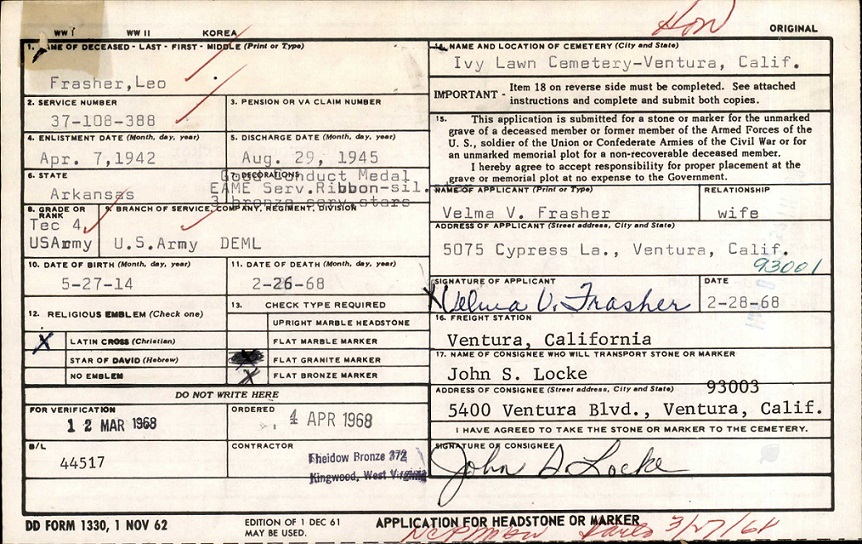 WW I WW II KOREA
Hon
ORIGINAL
1. NAME OF DECEASED - LAST - FIRST - MIDDLE (Print or Type)
Frasher,Leo
2. SERVICE NUMBER
37-108-388
3. PENSION OR VA CLAIM NUMBER
4. ENLISTMENT DATE (Month, day, year)
Apr. 7,1942
5. DISCHARGE DATE (Month, day, year)
Aug. 29, 1945
6. STATE
Arkansas
7. DECORATIONS
Good Conduct Medal
EAME Serv.Ribbon-sil.
3 bronze serv.stars
8. GRADE OR RANK
Tec 4
USArmy
9. BRANCH OF SERVICE, COMPANY, REGIMENT, DIVISION
U.S.Army DEML
10. DATE OF BIRTH (Month, day, year)
5-27-14
11. DATE OF DEATH (Month, day, year)
2-26-68
12. RELIGIOUS EMBLEM (Check one)
X LATIN CROSS (Christian)
STAR OF DAVID (Hebrew)
NO EMBLEM
13. CHECK TYPE REQUIRED
UPRIGHT MARBLE HEADSTONE
FLAT MARBLE MARKER
FLAT GRANITE MARKER
X FLAT BRONZE MARKER
DO NOT WRITE HERE
FOR VERIFICATION
12 MAR 1968
ORDERED
4 APR 1968
B/L
44517
CONTRACTOR
Sheidow Bronze
Kingwood, West Virginia
14. NAME AND LOCATION OF CEMETERY (City and State)
Ivy Lawn Cemetery-Ventura, Calif.
IMPORTANT - Item 18 on reverse side must be completed. See attached
instructions and complete and submit both copies.
15. This application is submitted for a stone or marker for the unmarked
grave of a deceased member or former member of the Armed Forces of the
U. S., soldier of the Union or Confederate Armies of the Civil War or for
an unmarked memorial plot for a non-recoverable deceased member.
I hereby agree to accept responsibility for proper placement at the
grave or memorial plot at no expense to the Government.
NAME OF APPLICANT (Print or Type)
Velma V. Frasher
RELATIONSHIP
wife
ADDRESS OF APPLICANT (Street address, City and State)
5075 Cypress La., Ventura, Calif.
93001
SIGNATURE OF APPLICANT
X Velma V. Frasher
DATE
2-28-68
16. FREIGHT STATION
Ventura, California
17. NAME OF CONSIGNEE WHO WILL TRANSPORT STONE OR MARKER
John S. Locke
ADDRESS OF CONSIGNEE (Street address, City and State)
93003
5400 Ventura Blvd., Ventura, Calif.
I HAVE AGREED TO TAKE THE STONE OR MARKER TO THE CEMETERY.
SIGNATURE OF CONSIGNEE
John S Locke
DD FORM 1330, 1 NOV 62
EDITION OF 1 DEC 61
MAY BE USED.
APPLICATION FOR HEADSTONE OR MARKER
3/27/68